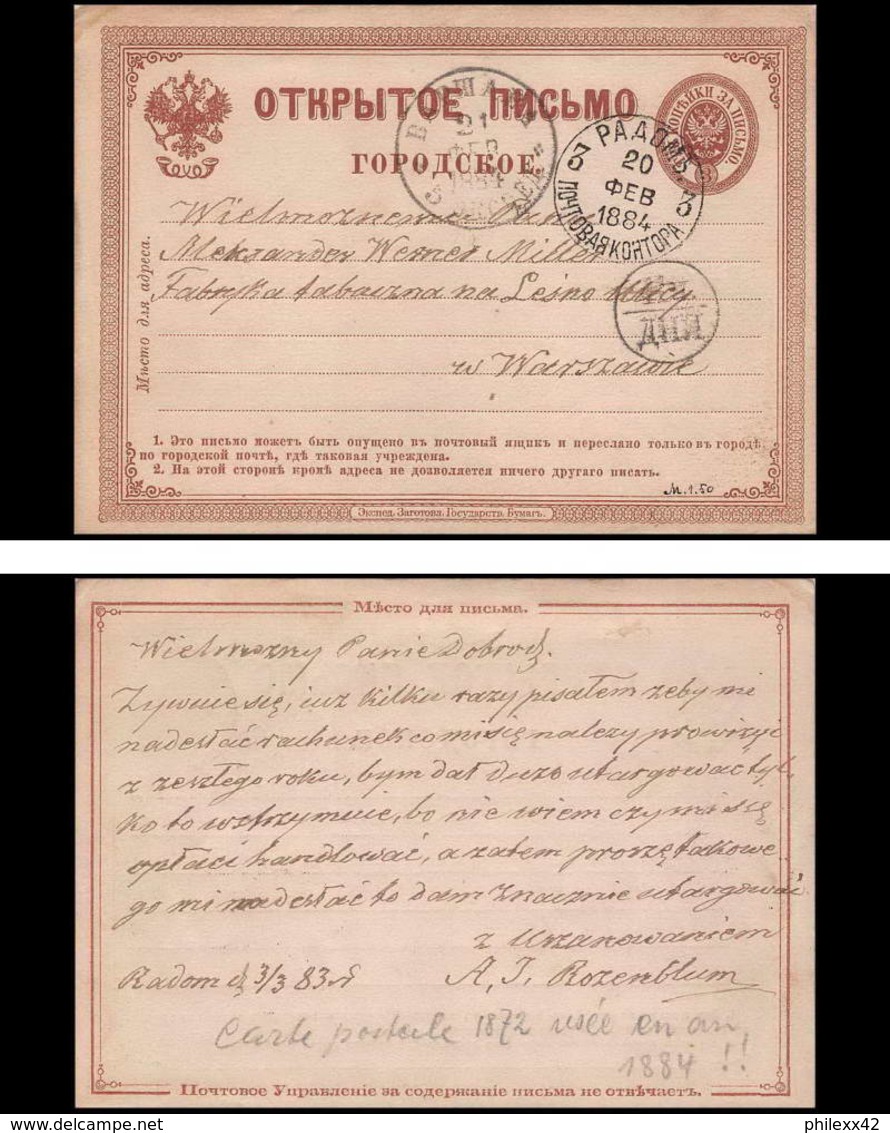 ОТКРЫТОЕ ПИСЬМО
ГОРОДСКОЕ.
КОПѢЙКИ ЗА ПИСЬМО.
ВАРШАВА
21
ФЕВ
1884
РАДОМЪ
3 3
20
ФЕВ
1884
ПОЧТОВАЯ КОНТОРА
ДНЯ
Мѣсто для адреса.
Wielmożnemu Panu
Aleksander Werner Miller
Fabryka tabaczna na Leśno Ulicy
w Warszawie
1. Это письмо можетъ быть опущено въ почтовый ящикъ и переслано только въ городѣ,
по городской почтѣ, гдѣ таковая учреждена.
2. На этой сторонѣ кромѣ адреса не дозволяется ничего другаго писать.
M.1.50
Экспед. Заготовл. Государств. Бумагъ.
Мѣсто для письма.
Wielmozny Panie Dobrodz.
się, iuz kilku razy pisałem zeby mi
nadesłać rachunek co mi się nalezy prowizyi
z zeszłego roku, bym dał duzo utargować tyl
ko to wstrzymuie, bo nie wiem czy mi się
opłaci handlować, a zatem proszę takowe
go mi nadesłać to dam znacznie utargować
z Uszanowaniem
Radom d 3/3 83 A. J. Rozenblum
Carte postale 1872 usée en an
1884 !!
Почтовое Управленіе за содержаніе письма не отвѣчаетъ.
delcampe.net
philexx42